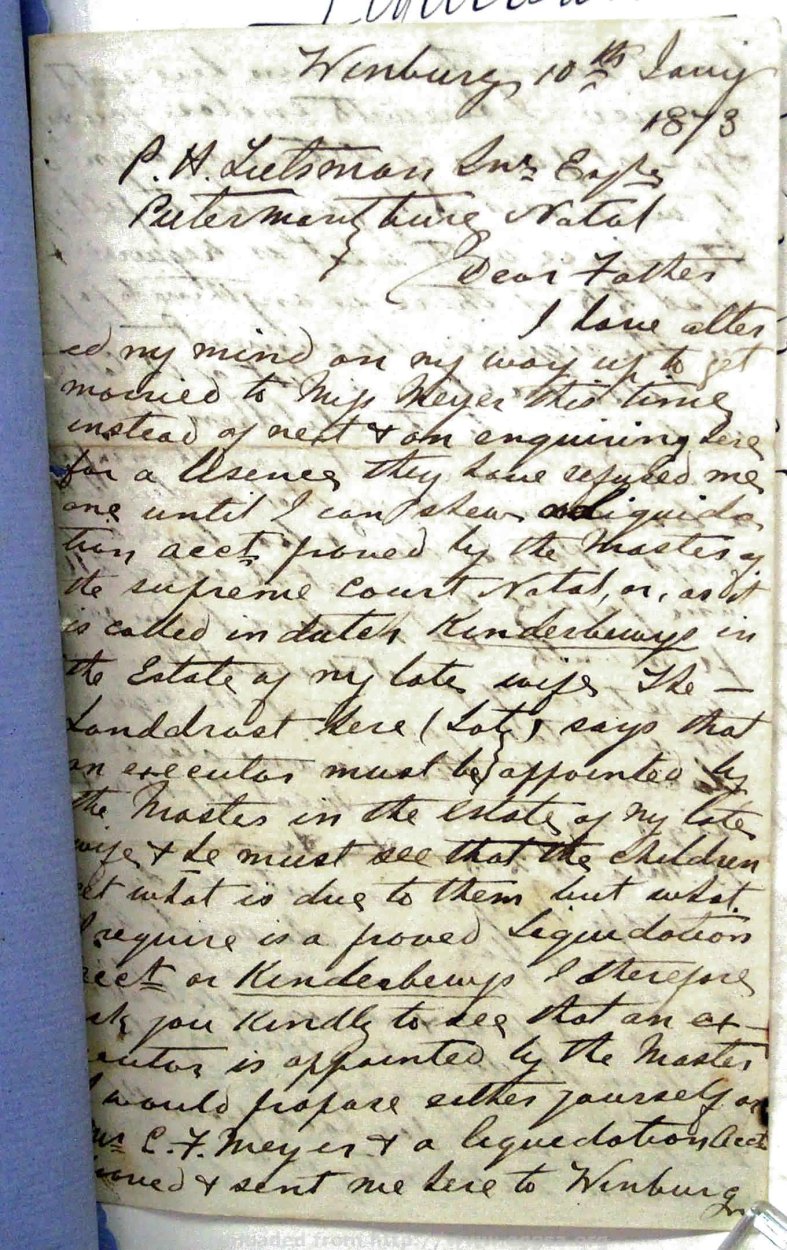 Winburg 10th Jany
1873
P. H. Lutsman Snr Esqre
Pietermaritzburg Natal
Dear Father
I have alter
ed my mind on my way up to get
married to Miss Meyer this time
instead of next & on enquiring here
for a lisence they have refused me
one until I can shew a Liquida
tion acct proved by the Master of
the supreme Court Natal, or, as it
is called in dutch Kinderbewys in
the Estate of my late wife The —
Landdrost here (Lotz) says that
an executor must be appointed by
the Master in the estate of my late
wife & he must see that the children
get what is due to them but what
I require is a proved Liquidation
acct or Kinderbewys I therefore
ask you kindly to see that an ex—
ecutor is appointed by the Master
I would propose either yourself or
C. F. Meyer & a liquidation acct
proved & sent me here to Winburg